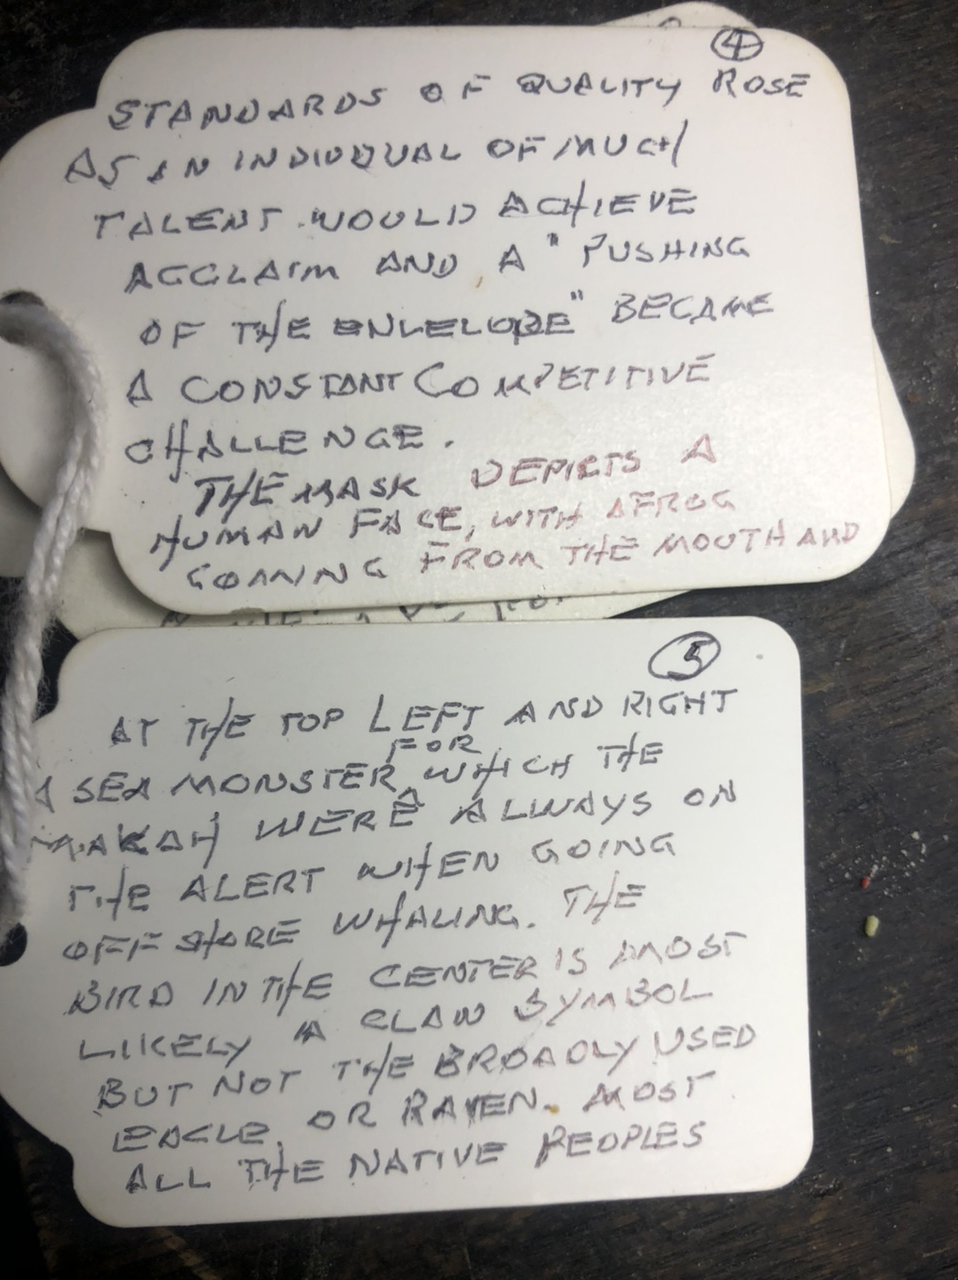 ④
STANDARDS OF QUALITY ROSE
AS AN INDIVIDUAL OF MUCH
TALENT WOULD ACHIEVE
ACCLAIM AND A "PUSHING
OF THE ENVELOPE" BECAME
A CONSTANT COMPETITIVE
CHALLENGE.
THE MASK DEPICTS A
HUMAN FACE, WITH A FROG
COMING FROM THE MOUTH AND
⑤
AT THE TOP LEFT AND RIGHT
FOR
A SEA MONSTER ^ WHICH THE
MAKAH WERE ALWAYS ON
THE ALERT WHEN GOING
OFF SHORE WHALING. THE
BIRD IN THE CENTER IS MOST
LIKELY A CLAN SYMBOL
BUT NOT THE BROADLY USED
EAGLE, OR RAVEN. MOST
ALL THE NATIVE PEOPLES